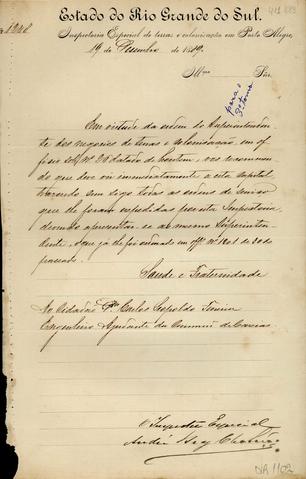 Estado do Rio Grande do Sul.
Inspectoria Especial de terras e colonisação em Porto Alegre,
19 de Dezembro de 1889.
Illmo Snr.
para o
Em virtude da ordem do Superintenden
te dos negocios de terras e colonisação em of
ficio sob Nº datado de hontem, vos recommen
do que deve vir immediatamente a esta capital
trazendo com sigo todas as ordens de serviço
que lhe foram expedidas por esta Inspectoria
devendo apresentar-se ao mesmo Superinten
dente, o que já lhe foi ordenado em off. Nº de 20 do
passado.
Saude e Fraternidade
Ao Cidadão Carlos Leopoldo
Engenheiro Ajudante da Commissão de Caxias
O Inspector Especial
André